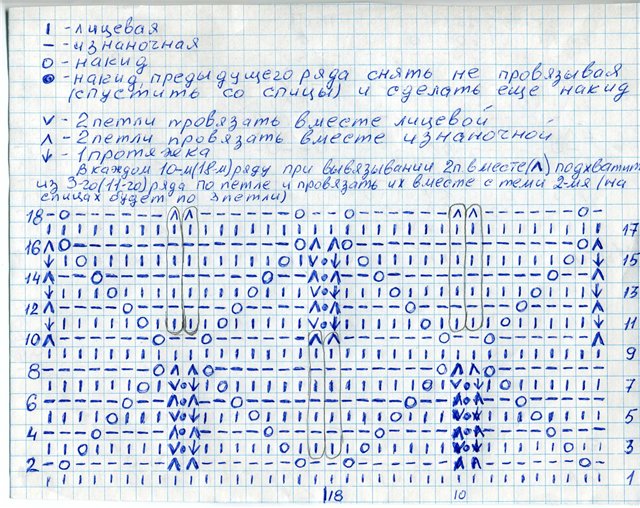 ı - лицевая
– - изнаночная
о - накид
● - накид предыдущего ряда снять не провязывая
(спустить со спицы) и сделать еще накид
v - 2 петли провязать вместе лицевой
ʌ - 2 петли провязать вместе изнаночной
↓ - 1 протяжка
В каждом 10-м (18-м) ряду при вывязывании 2п вместе (ʌ) подхватит
из 3-го (11-го) ряда по петле и провязать их вместе с теми 2-мя (на
спицах будет по 3 петли)
18
17
16
15
14
13
12
11
10
9
8
7
6
5
4
3
2
1
18
10